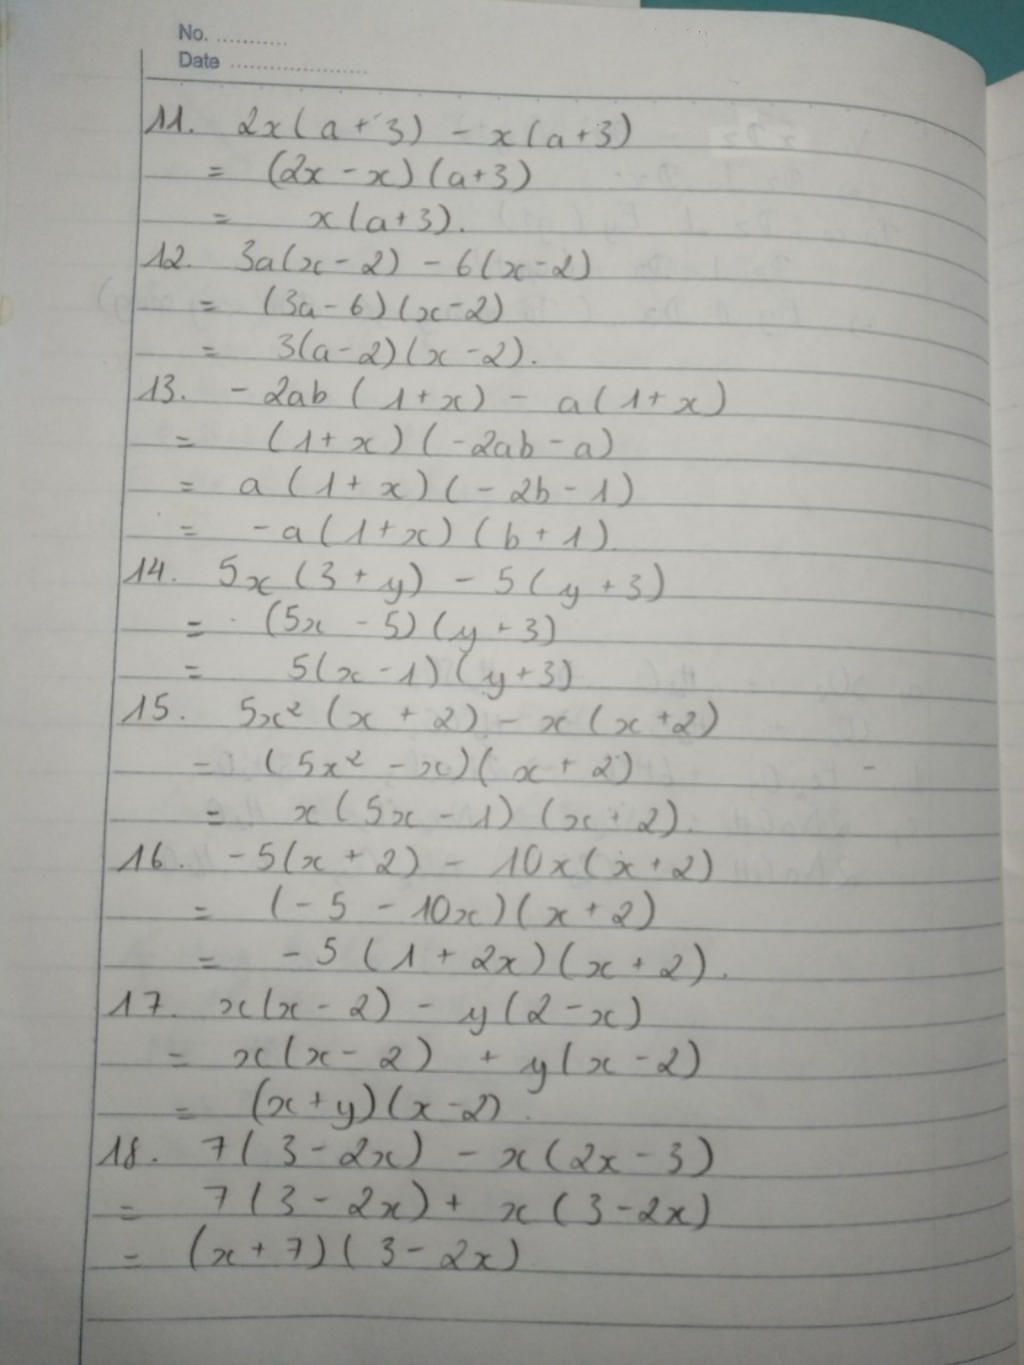 No. ...........
Date .....................
11. 2x(a+3) - x(a+3)
= (2x - x)(a+3)
= x(a+3).
12. 3a(x-2) - 6(x-2)
= (3a-6)(x-2)
= 3(a-2)(x-2).
13. -2ab(1+x) - a(1+x)
= (1+x)(-2ab-a)
= a(1+x)(-2b-1)
= -a(1+x)(b+1).
14. 5x(3+y) - 5(y+3)
= (5x-5)(y+3)
= 5(x-1)(y+3)
15. 5x²(x+2) - x(x+2)
= (5x²-x)(x+2)
= x(5x-1)(x+2).
16. -5(x+2) - 10x(x+2)
= (-5-10x)(x+2)
= -5(1+2x)(x+2).
17. x(x-2) - y(2-x)
= x(x-2) + y(x-2)
= (x+y)(x-2).
18. 7(3-2x) - x(2x-3)
= 7(3-2x) + x(3-2x)
= (x+7)(3-2x)